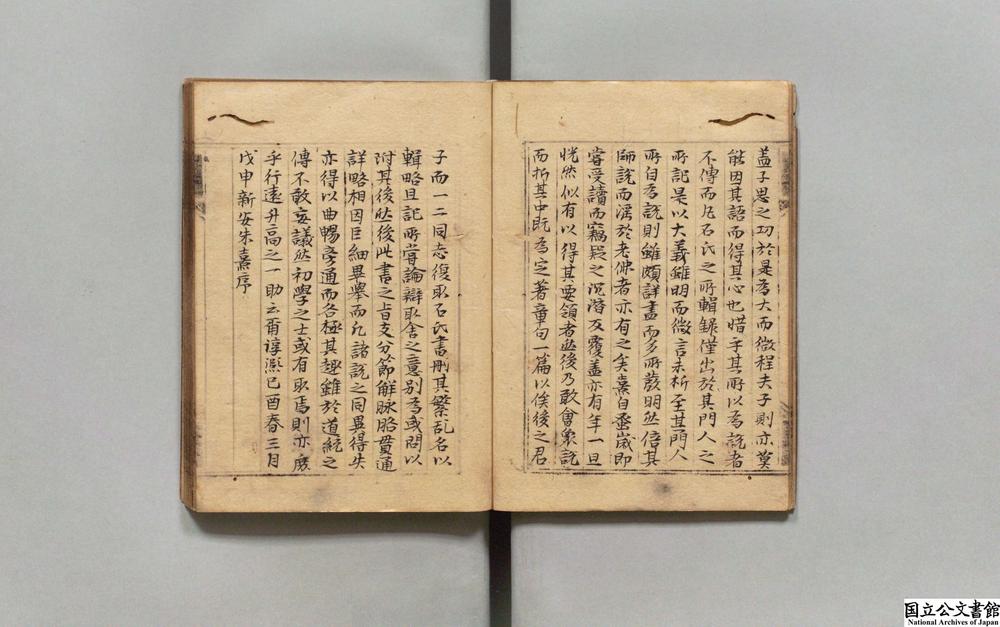 蓋子思之功於是為大而微程夫子則亦莫
能因其語而得其心也惜乎其所以為說者
不傳而凡石氏之所輯錄僅出於其門人之
所記是以大義雖明而微言未析至其門人
所自為說則雖頗詳盡而多所發明然倍其
師說而淫於老佛者亦有之矣熹自蚤歲即
甞受讀而竊疑之沉潛反覆蓋亦有年一旦
恍然似有以得其要領者然後乃敢會衆說
而折其中既為定著章句一篇以俟後之君
子而一二同志復取石氏書刪其繁乱名以
輯略且記所甞論辯取舍之意別為或問以
附其後然後此書之旨支分節解脉胳貫通
詳略相因巨細畢舉而凡諸說之同異得失
亦得以曲暢旁通而各極其趣雖於道統之
傳不敢妄議然初學之士或有取焉則亦庶
乎行遠升高之一助云甭淳熙己酉春三月
戊申新安朱熹序
国立公文書館
National Archives of Japan